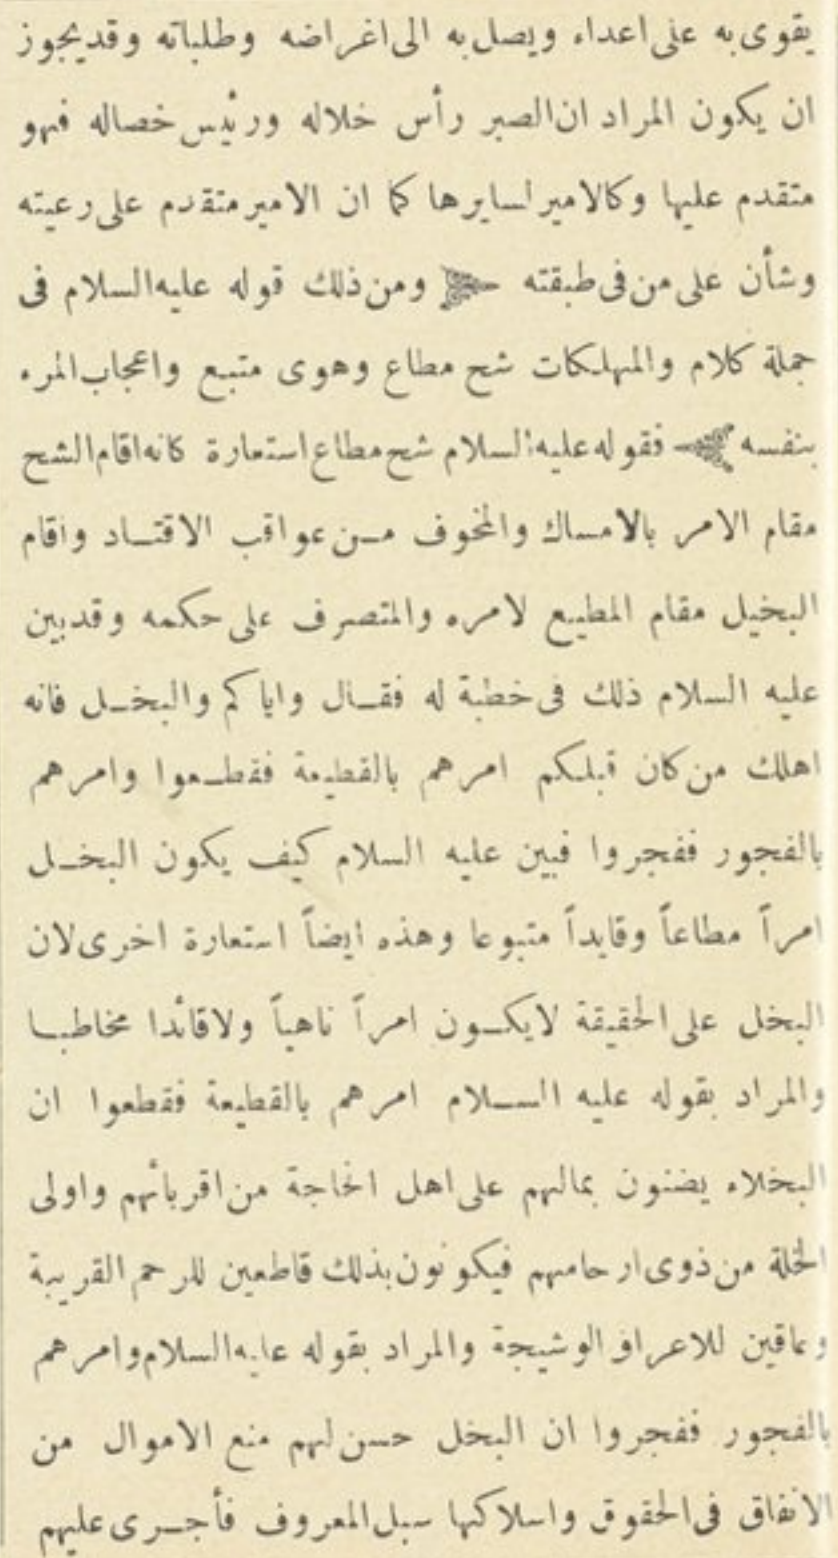 يقوى به على اعداء ويصل به الى اغراضه وطلباته وقديجوز
ان يكون المراد ان الصبر رأس خلاله ورئيس خصاله فهو
متقدم عليها وكالامير لسايرها كما ان الامير متقدم على رعيته
وشأن على من فى طبقته ومن ذلك قوله عليه السلام فى
جملة كلام والمهلكات شح مطاع وهوى متبع واعجاب المرء
بنفسه فقوله عليه السلام شح مطاع استعارة كانه اقام الشح
مقام الامر بالامساك والمخوف من عواقب الاقتـاد واقام
البخيل مقام المطيع لامره والمتصرف على حكمه وقدبين
عليه السلام ذلك فى خطبة له فقال واياكم والبخل فانه
اهلك من كان قبلكم امرهم بالقطيعة فقطعوا وامرهم
بالفجور ففجروا فبين عليه السلام كيف يكون البخل
امراً مطاعاً وقايداً متبوعا وهذه ايضاً استعارة اخرى لان
البخل على الحقيقة لايكون امراً ناهياً ولاقائدا مخاطبا
والمراد بقوله عليه السلام امرهم بالقطيعة فقطعوا ان
البخلاء يضنون بمالهم على اهل الحاجة من اقربائهم واولى
الخلة من ذوى ارحامهم فيكونون بذلك قاطعين للرحم القريبة
وعاقين للاعراق الوشيجة والمراد بقوله عليه السلام وامرهم
بالفجور ففجروا ان البخل حسن لهم منع الاموال من
الانفاق فى الحقوق واسلاكها سبل المعروف فأجرى عليهم